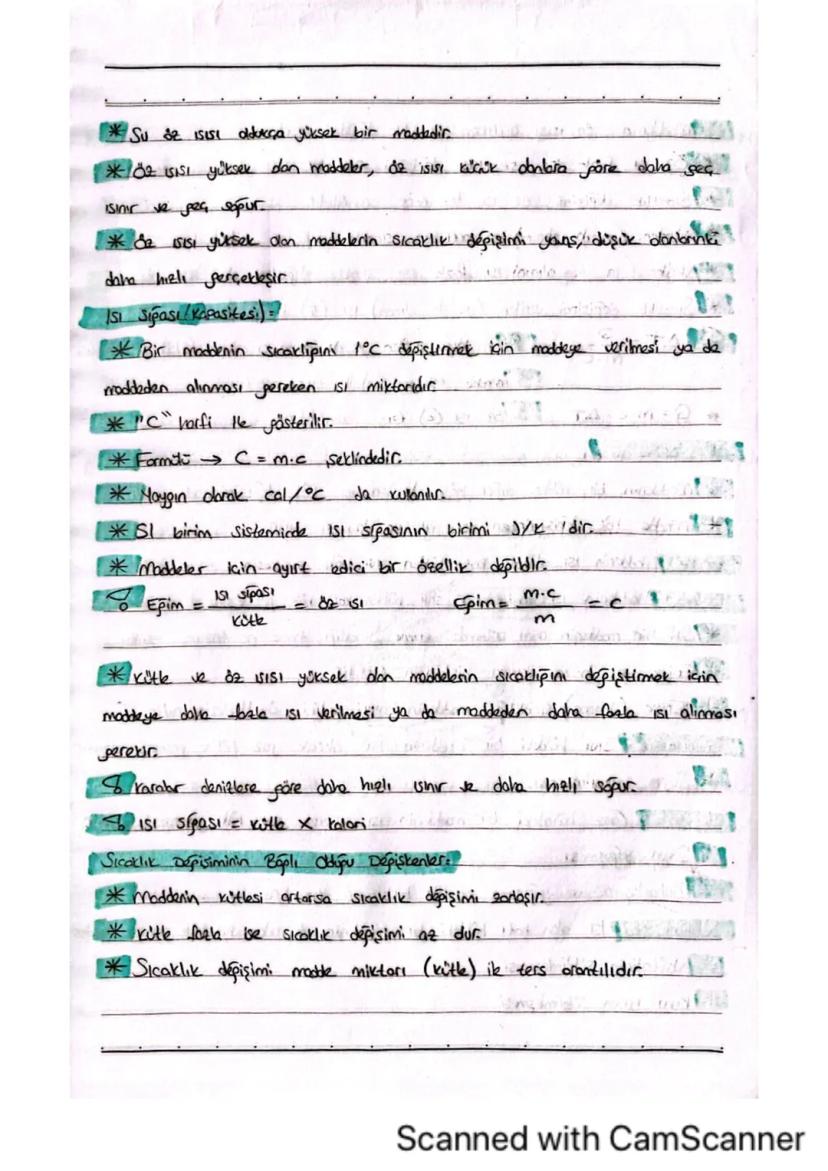 * Su öz ısısı oldukça yüksek bir maddedir.
* Öz ısısı yüksek olan maddeler, öz ısısı küçük olanlara göre daha geç
ısınır ve geç soğur.
* Öz ısısı yüksek olan maddelerin sıcaklık değişimi yavaş, düşük olanlarınki
daha hızlı gerçekleşir.
Isı Sığası (Kapasitesi):
* Bir maddenin sıcaklığını 1°C değiştirmek için maddeye verilmesi ya da
maddeden alınması gereken ısı miktarıdır.
* "C" harfi ile gösterilir.
* Formülü → C = m.c şeklindedir.
* Yaygın olarak cal/°C da kullanılır.
* SI birim sisteminde ısı sığasının birimi J/K 'dir.
* Maddeler için ayırt edici bir özellik değildir.
Eğim = ısı sığası / kütle = öz ısı Eğim = m.c / m = c
* Kütle ve öz ısısı yüksek olan maddelerin sıcaklığını değiştirmek için
maddeye daha fazla ısı verilmesi ya da maddeden daha fazla ısı alınması
gerekir.
Karalar denizlere göre daha hızlı ısınır ve daha hızlı soğur.
Isı sığası = kütle x kalori
Sıcaklık Değişiminin Bağlı Olduğu Değişkenler:
* Maddenin kütlesi artarsa sıcaklık değişimi zorlaşır.
* Kütle fazla ise sıcaklık değişimi az dır.
* Sıcaklık değişimi madde miktarı (kütle) ile ters orantılıdır.
Scanned with CamScanner